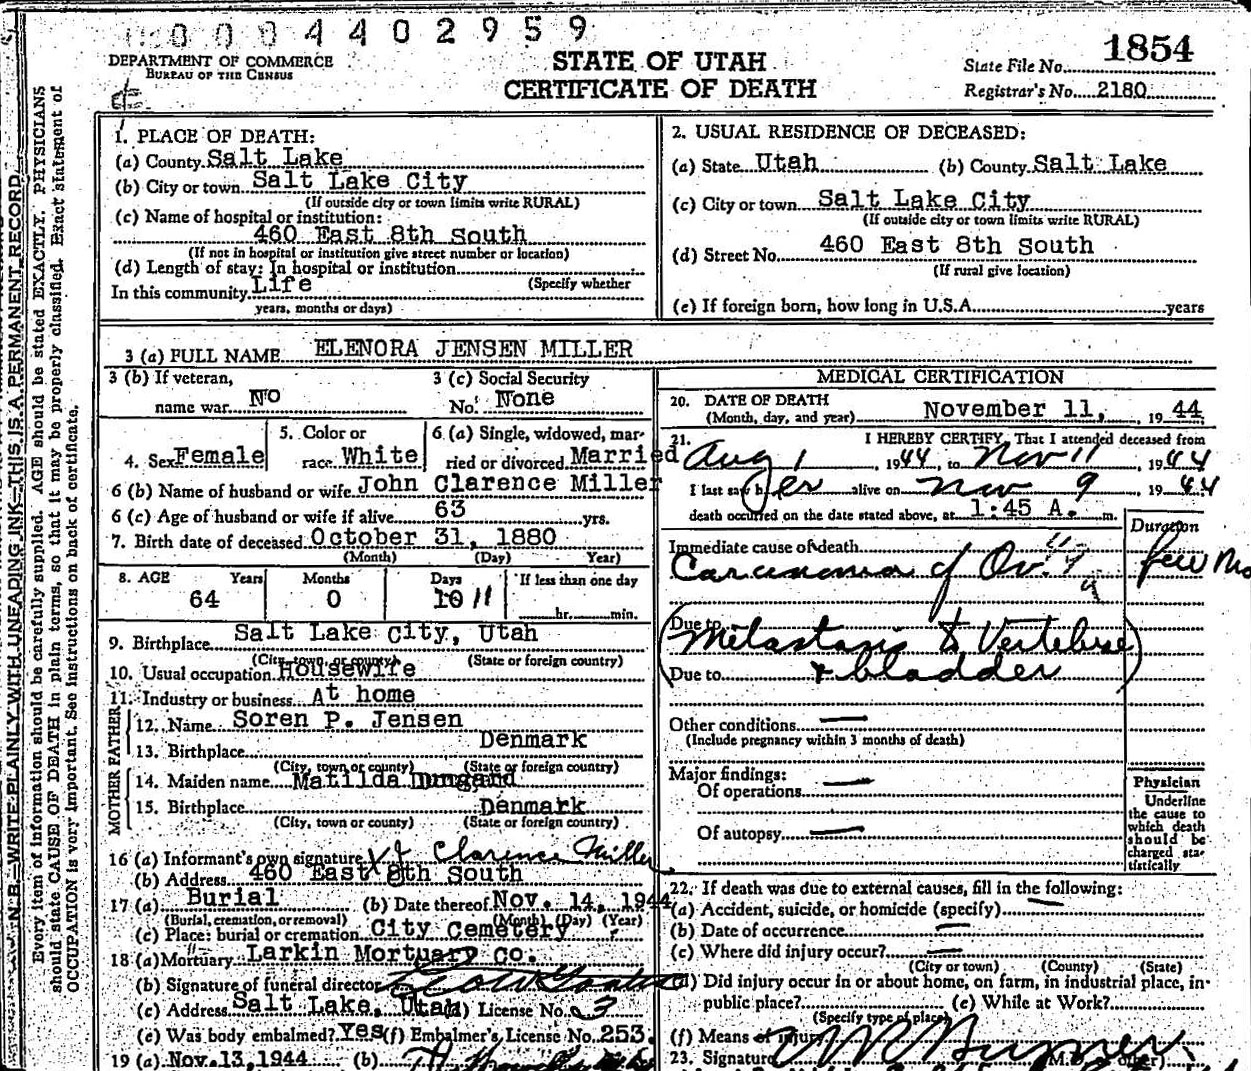 0004402959
DEPARTMENT OF COMMERCE
BUREAU OF THE CENSUS
STATE OF UTAH
CERTIFICATE OF DEATH
State File No. 1854
Registrar's No. 2180
N. B.—WRITE PLAINLY WITH UNFADING INK—THIS IS A PERMANENT RECORD.
Every item of information should be carefully supplied. AGE should be stated EXACTLY. PHYSICIANS
should state CAUSE OF DEATH in plain terms, so that it may be properly classified. Exact statement of
OCCUPATION is very important. See instructions on back of certificate.
1. PLACE OF DEATH:
(a) County Salt Lake
(b) City or town Salt Lake City
(If outside city or town limits write RURAL)
(c) Name of hospital or institution:
460 East 8th South
(If not in hospital or institution give street number or location)
(d) Length of stay: In hospital or institution
(Specify whether
In this community Life
years, months or days)
2. USUAL RESIDENCE OF DECEASED:
(a) State Utah (b) County Salt Lake
(c) City or town Salt Lake City
(If outside city or town limits write RURAL)
(d) Street No. 460 East 8th South
(If rural give location)
(e) If foreign born, how long in U.S.A. years
3 (a) FULL NAME ELENORA JENSEN MILLER
3 (b) If veteran,
name war No
3 (c) Social Security
No. None
4. Sex Female
5. Color or
race White
6. (a) Single, widowed, mar-
ried or divorced Married
6 (b) Name of husband or wife John Clarence Miller
6 (c) Age of husband or wife if alive 63 yrs.
7. Birth date of deceased October 31, 1880
(Month) (Day) Year)
8. AGE Years Months Days If less than one day
64 0 10 11 hr. min.
9. Birthplace Salt Lake City, Utah
(City, town, or county) (State or foreign country)
10. Usual occupation Housewife
11. Industry or business At home
FATHER
12. Name Soren P. Jensen
13. Birthplace Denmark
(City, town or county) (State or foreign country)
MOTHER
14. Maiden name Matilda Dungard
15. Birthplace Denmark
(City, town or county) (State or foreign country)
16 (a) Informant's own signature Clarence Miller
(b) Address 460 East 8th South
17 (a) Burial (b) Date thereof Nov. 14, 1944
(Burial, cremation, or removal) (Month) (Day) (Year)
(c) Place: burial or cremation City Cemetery
18 (a) Mortuary Larkin Mortuary Co.
(b) Signature of funeral director
(c) Address Salt Lake, Utah (d) License No. 3
(e) Was body embalmed? Yes (f) Embalmer's License No. 253
19 (a) Nov. 13, 1944 (b)
MEDICAL CERTIFICATION
20. DATE OF DEATH
(Month, day, and year) November 11, , 19 44
21. I HEREBY CERTIFY, That I attended deceased from
Aug 1 , 1944, to Nov 11 , 1944
I last saw her alive on Nov 9 , 1944
death occurred on the date stated above, at 1:45 A. m.
Duration
Immediate cause of death
Carcinoma of Ov. few Mo
Due to
Metastasis to Vertebrae
Due to & bladder
Other conditions —
(Include pregnancy within 3 months of death)
Major findings:
Of operations —
Of autopsy —
Physician
Underline
the cause to
which death
should be
charged sta-
tistically
22. If death was due to external causes, fill in the following:
(a) Accident, suicide, or homicide (specify) —
(b) Date of occurrence —
(c) Where did injury occur? —
(City or town) (County) (State)
(d) Did injury occur in or about home, on farm, in industrial place, in
public place? (e) While at Work?
(Specify type of place)
(f) Means of injury
23. Signature (M.D. or other)